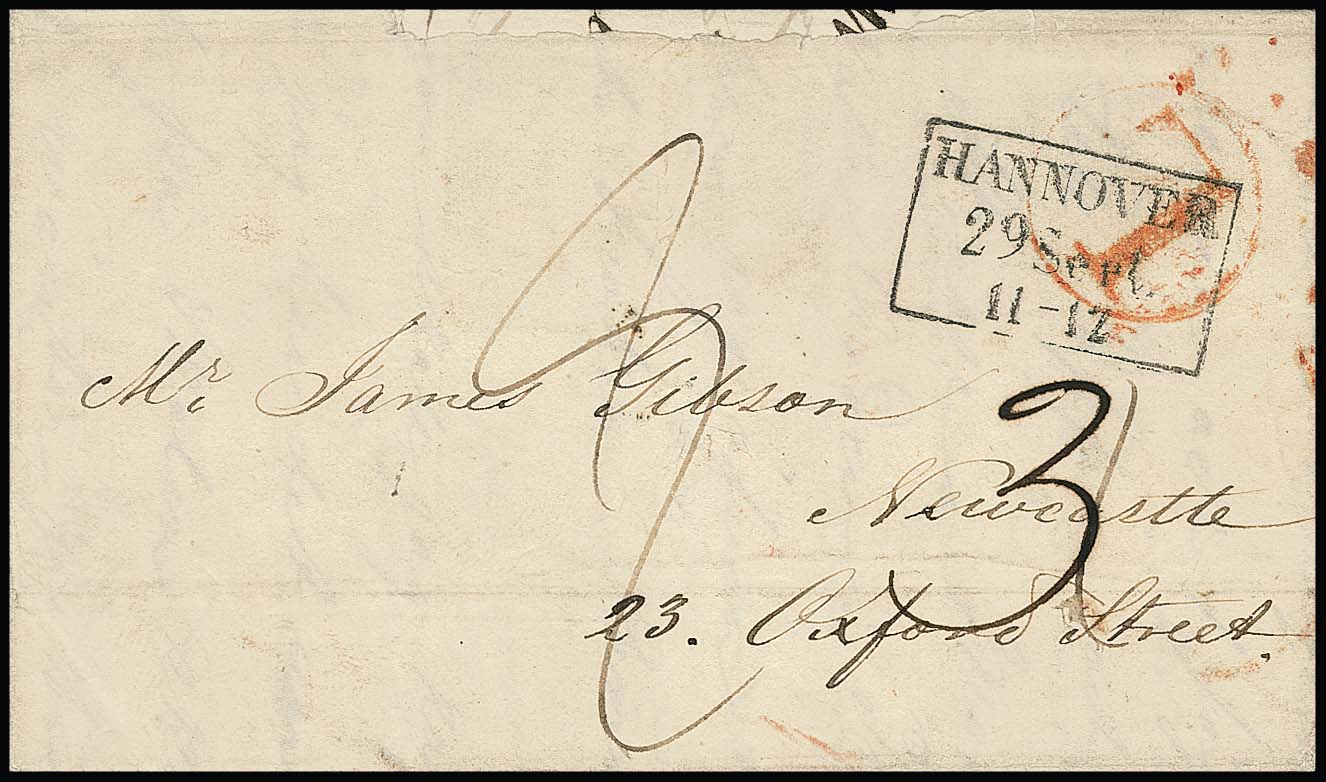 HANNOVER
29 Sept.
11-12
Mr. James Gibson
3
Newcastle
23. Oxford Street.